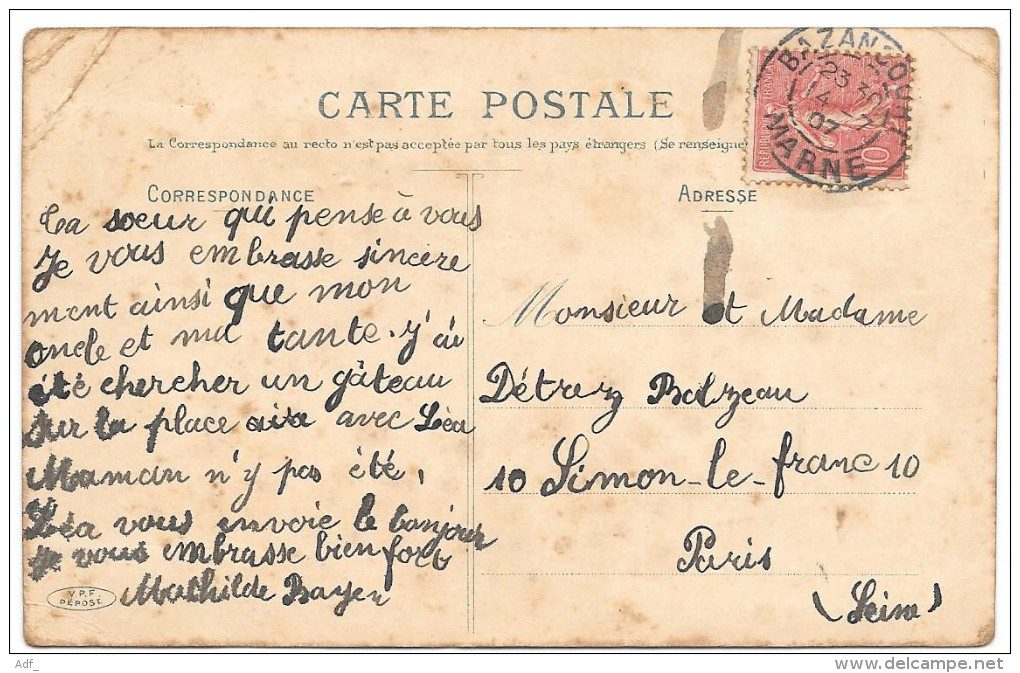 CARTE POSTALE
La Correspondance au recto n'est pas acceptée par tous les pays étrangers (Se renseigne
CORRESPONDANCE
ta soeur qui pense à vous
Je vous embrasse sincère
ment ainsi que mon
oncle et ma tante. j'ai
été chercher un gâteau
sur la place avec Léa
Maman n'y pas été,
Léa vous envoie le bonjour
Je vous embrasse bien fort
Mathilde Bayen
V.P.F.
DÉPOSÉ
ADRESSE
Monsieur et Madame
Détrez Balzeau
10 Simon-le-franc 10
Paris
(Seine)
BAZANCOURT
23 30
14 -7
07
MARNE
10
Adf_
delcampe.net